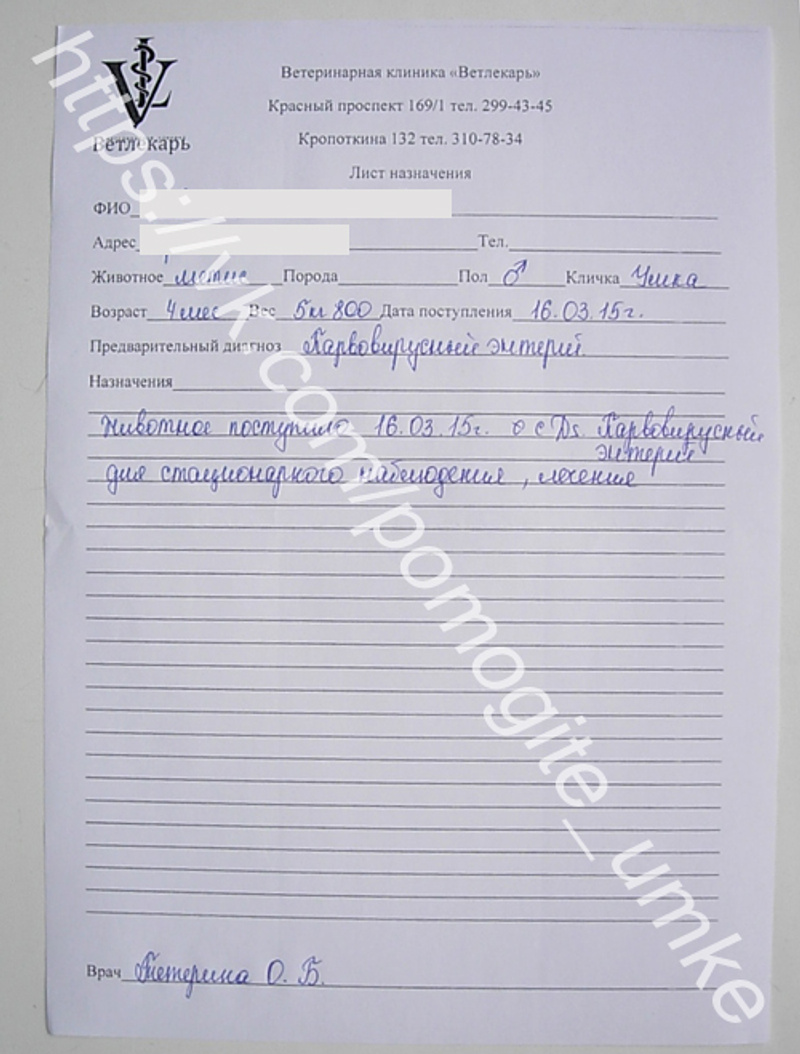 Ветлекарь
Ветеринарная клиника «Ветлекарь»
Красный проспект 169/1 тел. 299-43-45
Кропоткина 132 тел. 310-78-34
Лист назначения
ФИО
Адрес Тел.
Животное метис Порода Пол ♂ Кличка Умка
Возраст 4 мес Вес 5кг 800 Дата поступления 16.03.15г.
Предварительный диагноз Парвовирусный энтерит
Назначения
Животное поступило 16.03.15г. с Ds. Парвовирусный
энтерит
для стационарного наблюдения, лечения
Врач Тетерина О. Б.
https://vk.com/pomogite_umke